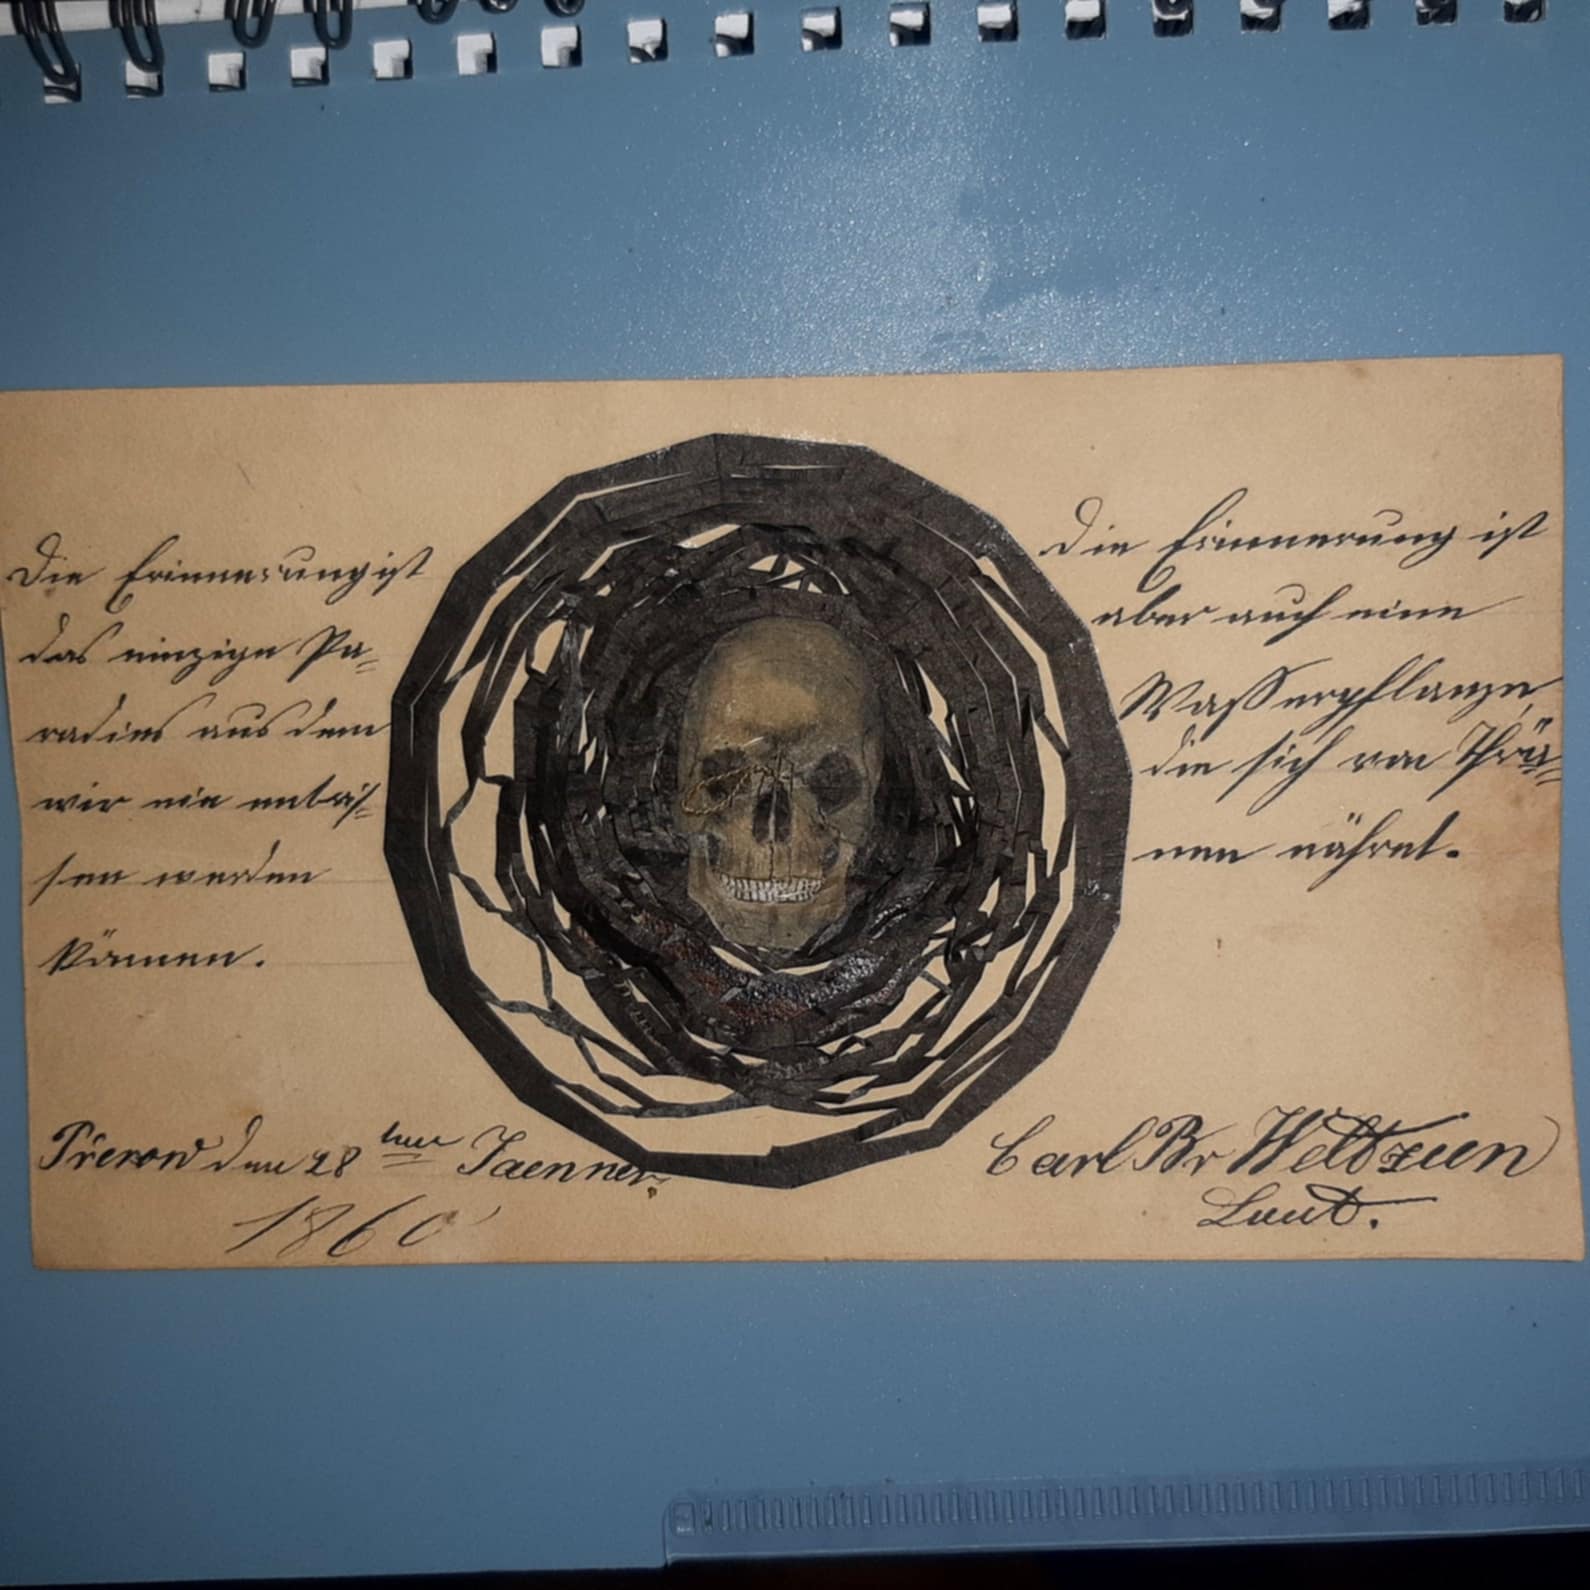 Die Erinnerung ist
das einzige Pa=
radies aus dem
wir nie
sen werden
können.
Die Erinnerung ist
aber auch eine
Wasserpflanze,
die sich von Thrä=
nen nähret.
Přerow den 28 ten Jaenner.
1860
Carl Br Weltzien